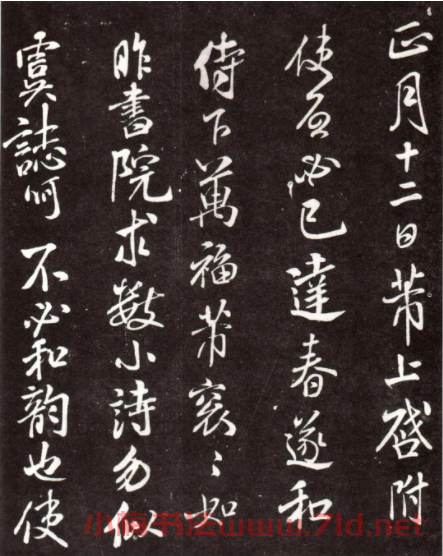 正月十二日芾上啓附
使必已達春遂和
侍下萬福芾衮〻如
昨書院求數小詩勿似
虞誌呵不必和韵也使
小楷书法www.7ld.net